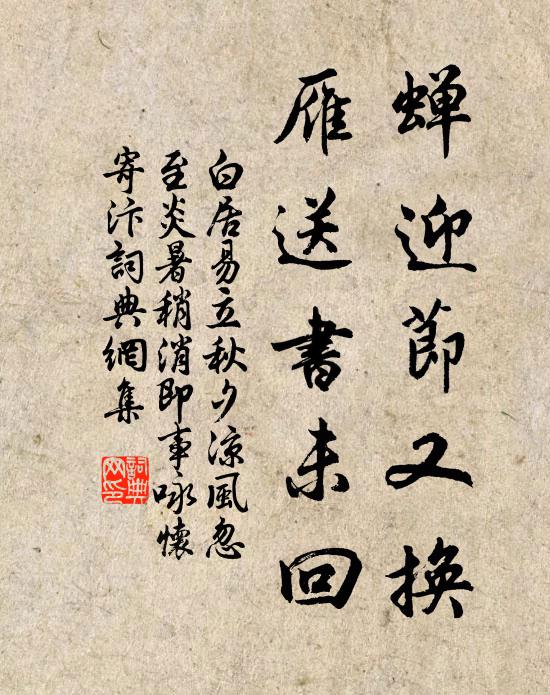 蝉迎節又換
雁送書未回
白居易立秋夕涼風忽
至炎暑稍消即事咏懷
寄汴詞典網集
詞典
网印